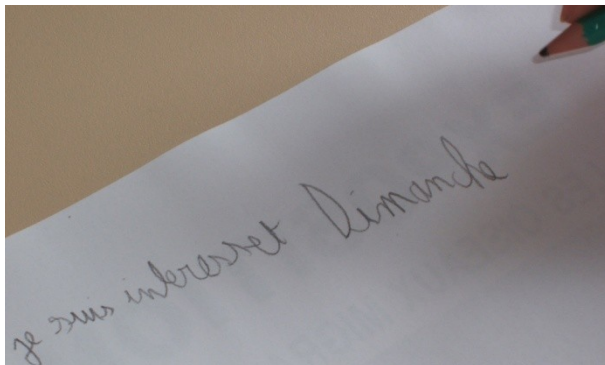 je suis interesset Dimanche